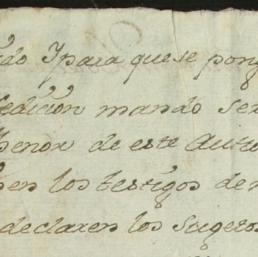 do Y para que se pon
edicion mando se
thenor de este Auto
en los testigos de
declaren los sugetos